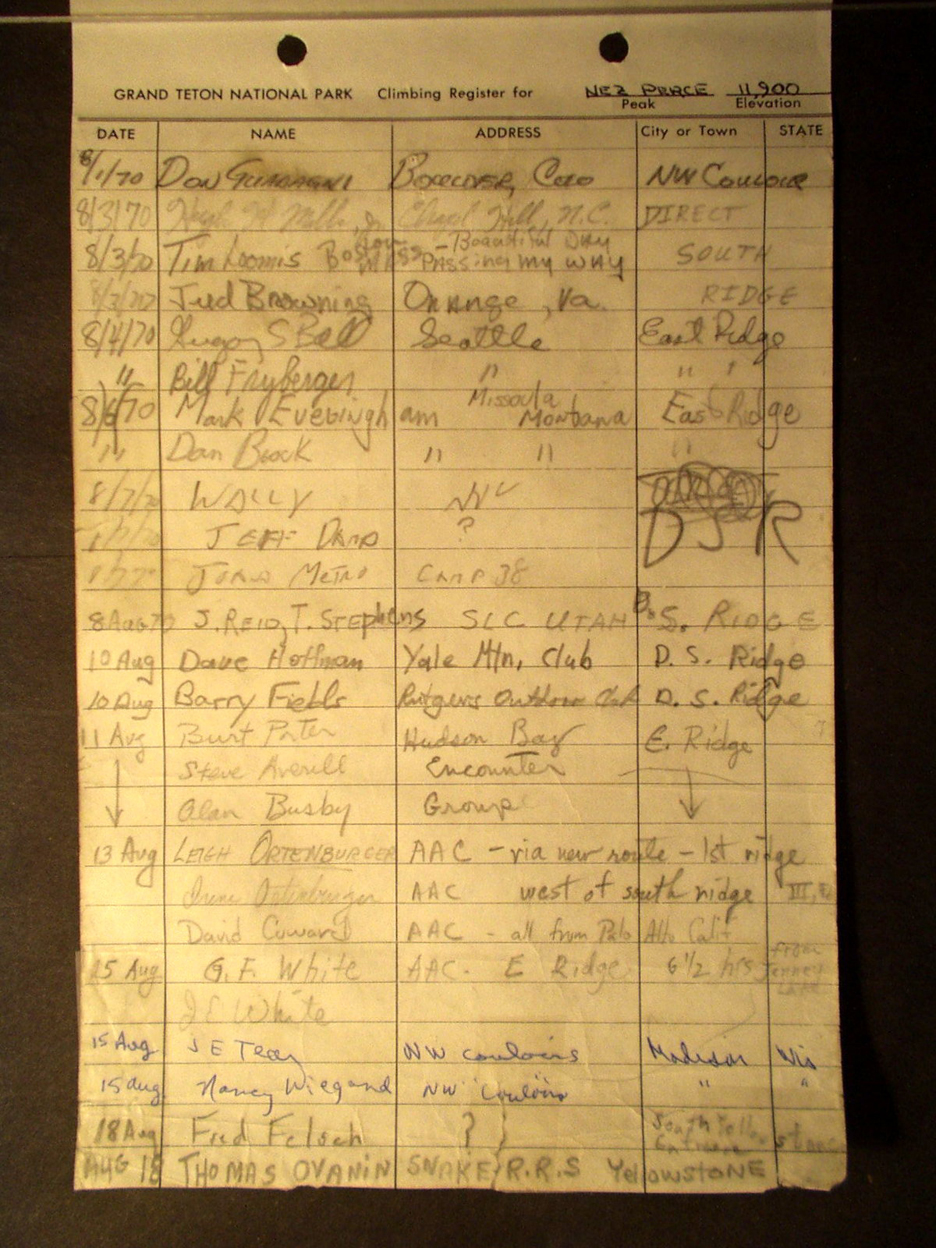 GRAND TETON NATIONAL PARK Climbing Register for NEZ PERCE 11,900
Peak Elevation
DATE NAME ADDRESS City or Town STATE
8/1/70 DON BOULDER, COLO NW COULOIR
8/3/70 Hugh Mills, Jr. Chapel Hill, N.C. DIRECT
8/3/70 Tim Loomis Boston Mass - Beautiful Day Passing my way SOUTH
8/3/70 Jud Browning Orange, Va. RIDGE
8/4/70 S Bell Seattle East Ridge
" Bill Fryberger " " "
8/6/70 Mark Evebingham Missoula Montana East Ridge
" Dan Block " " "
8/7/70 WALLY NY
JEFF ? DSR
METRO CAMP 38
8 Aug 70 J. REID, T. STEPHENS SLC UTAH D. S. RIDGE
10 Aug Dave Hoffman Yale Mtn. Club D. S. Ridge
10 Aug Barry Fields Rutgers Outdoor Club D. S. Ridge
11 Aug Burt Porter Hudson Bay E. Ridge
Steve Averill Encounter
Alan Busby Group
13 Aug LEIGH ORTENBURGER AAC - via new route - 1st ridge
Irene Ortenburger AAC west of south ridge III,
David Coward AAC - all from Palo Alto Calif
15 Aug G.F. White AAC. E Ridge 6 1/2 hrs from Jenney Lake
J E White
15 Aug J E Teag NW couloirs Madison Wis
15 Aug Nancy Wiegand NW Couloirs " "
18 Aug Fred Felsch ? } South Yellowstone Entrance
AUG 18 THOMAS OVANIN SNAKE R.R.S YELLOWSTONE